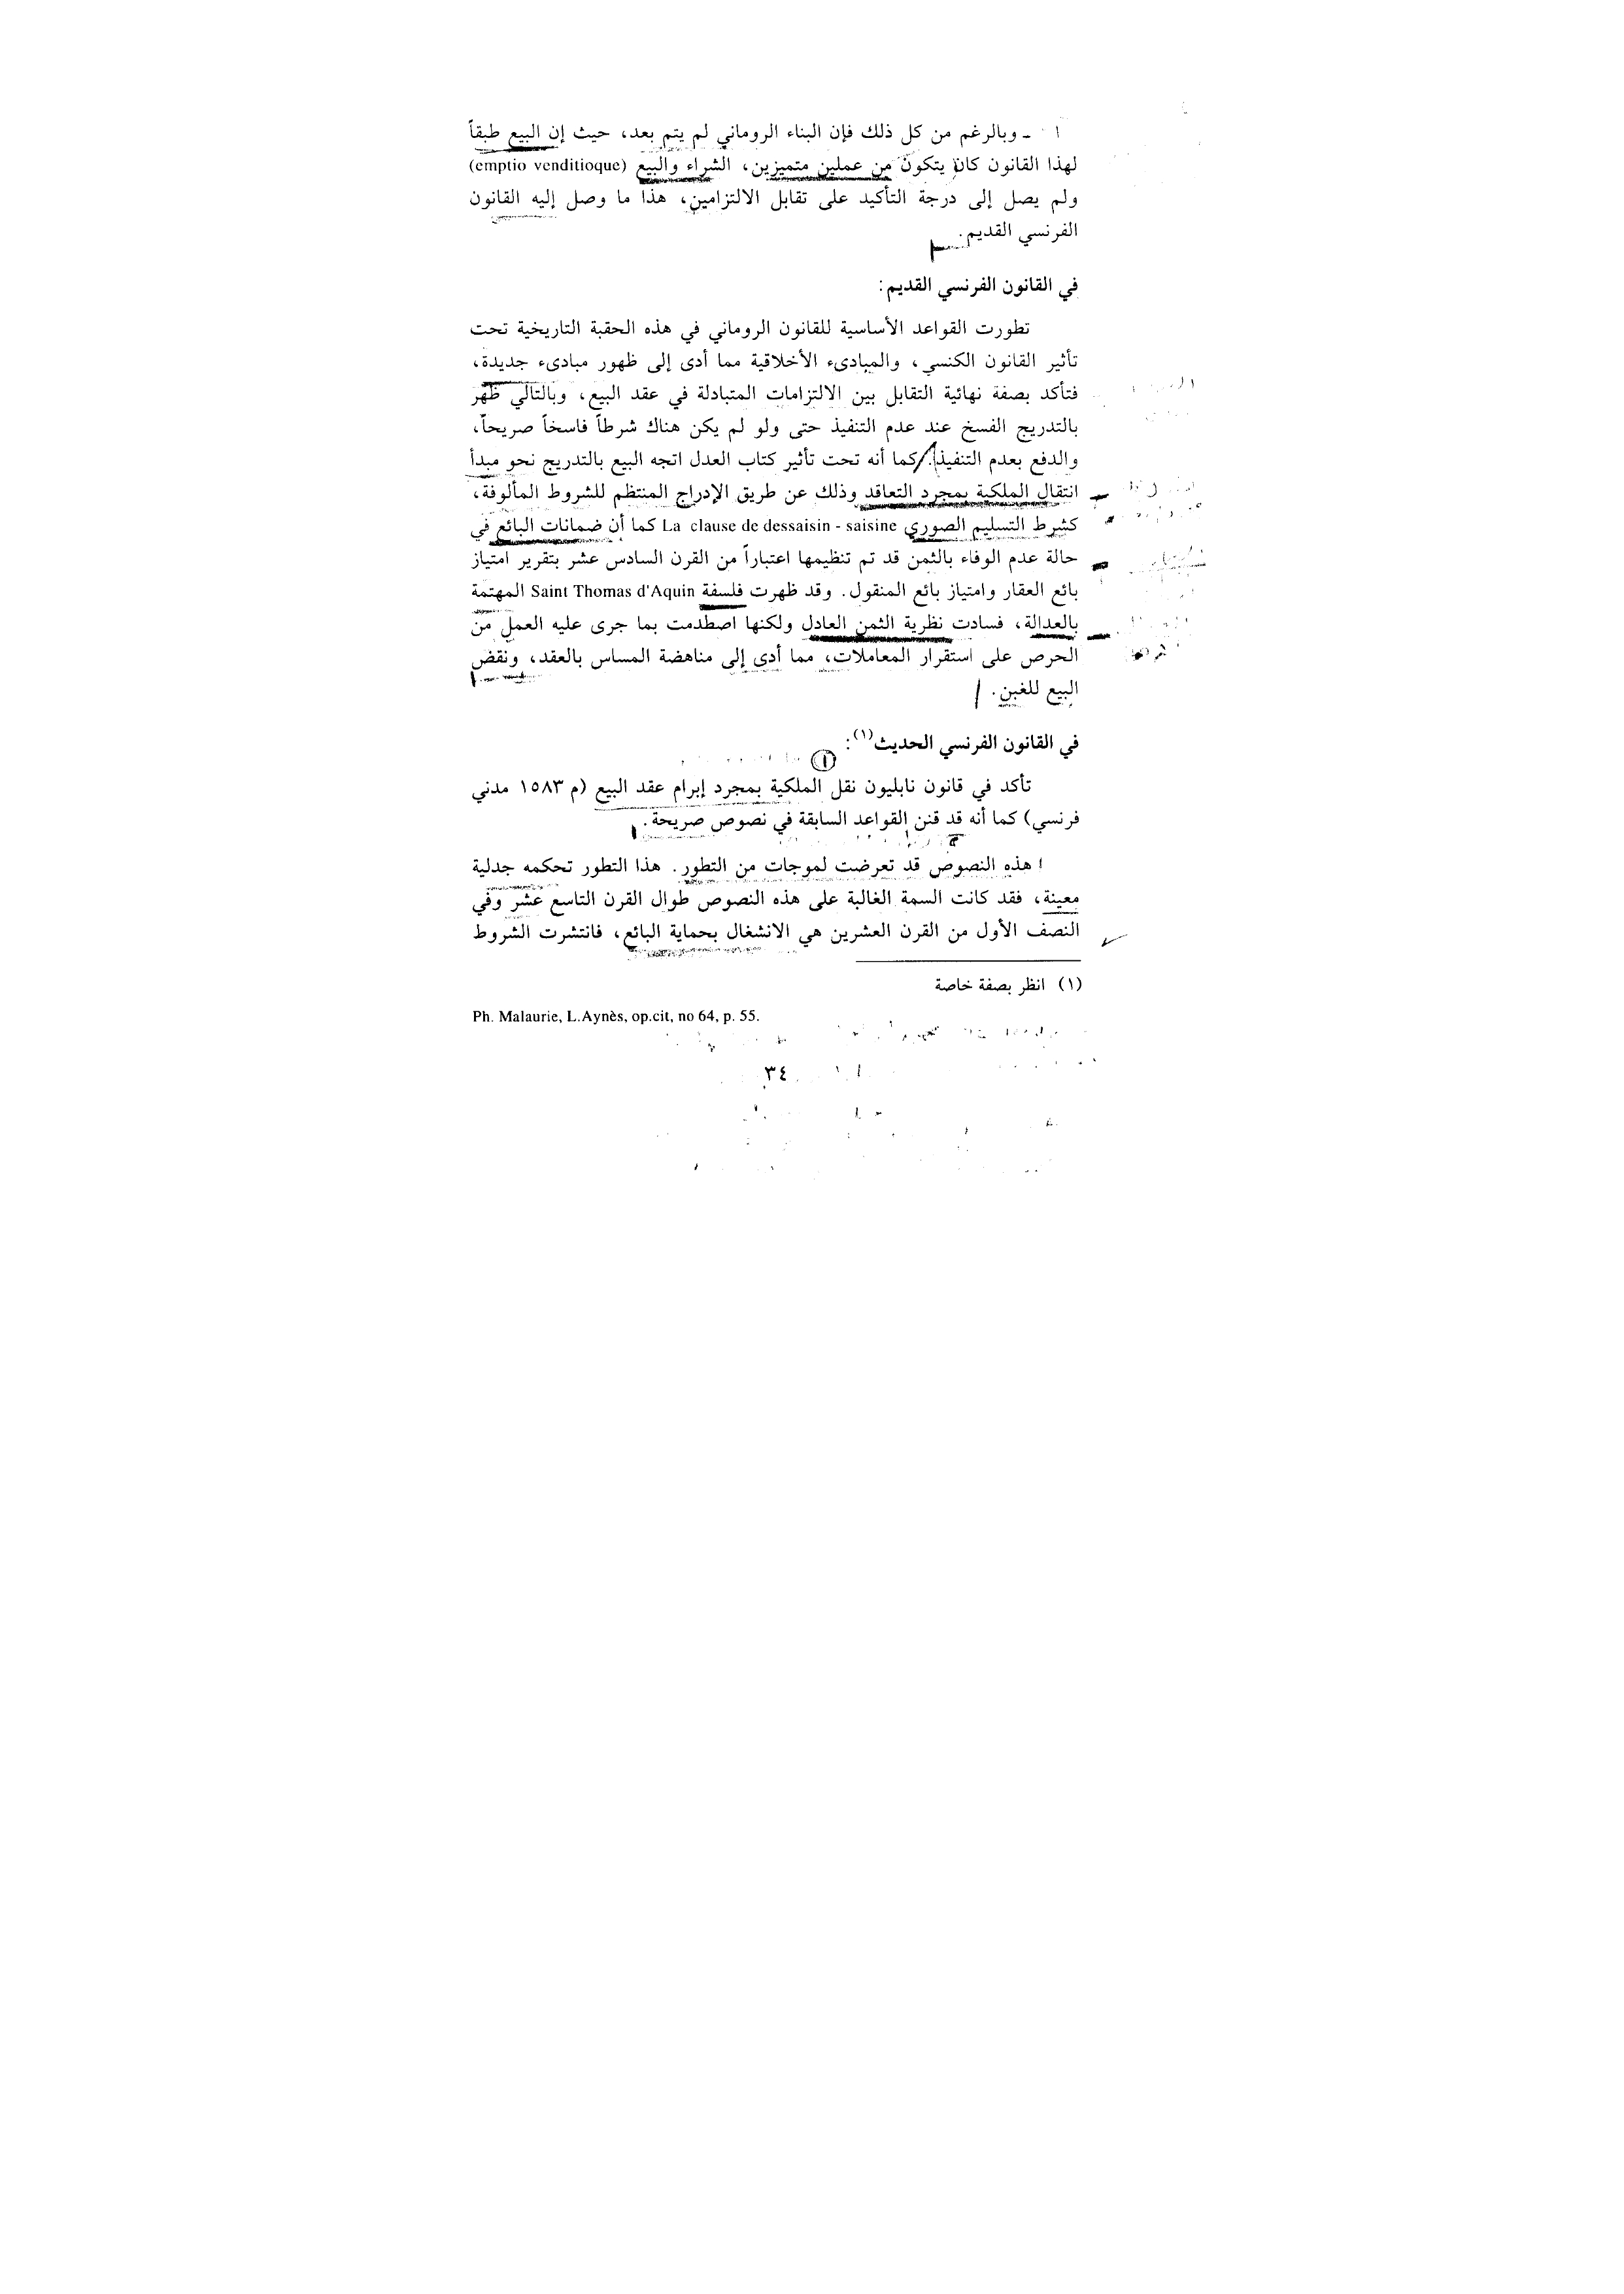 ـ وبالرغم من كل ذلك فإن البناء الروماني لم يتم بعد، حيث إن البيع طبقاً
لهذا القانون كان يتكون من عملين متميزين، الشراء والبيع (emptio venditioque)
ولم يصل إلى درجة التأكيد على تقابل الالتزامين، هذا ما وصل إليه القانون
الفرنسي القديم.
في القانون الفرنسي القديم:
تطورت القواعد الأساسية للقانون الروماني في هذه الحقبة التاريخية تحت
تأثير القانون الكنسي، والمبادىء الأخلاقية مما أدى إلى ظهور مبادىء جديدة،
فتأكد بصفة نهائية التقابل بين الالتزامات المتبادلة في عقد البيع، وبالتالي ظهر
بالتدريج الفسخ عند عدم التنفيذ حتى ولو لم يكن هناك شرطاً فاسخاً صريحاً،
والدفع بعدم التنفيذ. كما أنه تحت تأثير كتاب العدل اتجه البيع بالتدريج نحو مبدأ
انتقال الملكية بمجرد التعاقد وذلك عن طريق الإدراج المنتظم للشروط المألوفة،
كشرط التسليم الصوري La clause de dessaisin - saisine كما أن ضمانات البائع في
حالة عدم الوفاء بالثمن قد تم تنظيمها اعتباراً من القرن السادس عشر بتقرير امتياز
بائع العقار وامتياز بائع المنقول. وقد ظهرت فلسفة Saint Thomas d'Aquin المهتمة
بالعدالة، فسادت نظرية الثمن العادل ولكنها اصطدمت بما جرى عليه العمل من
الحرص على استقرار المعاملات، مما أدى إلى مناهضة المساس بالعقد، ونقض
البيع للغبن.
في القانون الفرنسي الحديث(١):
تأكد في قانون نابليون نقل الملكية بمجرد إبرام عقد البيع (م ١٥٨٣ مدني
فرنسي) كما أنه قد قنن القواعد السابقة في نصوص صريحة.
هذه النصوص قد تعرضت لموجات من التطور. هذا التطور تحكمه جدلية
معينة، فقد كانت السمة الغالبة على هذه النصوص طوال القرن التاسع عشر وفي
النصف الأول من القرن العشرين هي الانشغال بحماية البائع، فانتشرت الشروط
(١) انظر بصفة خاصة
Ph. Malaurie, L.Aynès, op.cit, no 64, p. 55.
٣٤